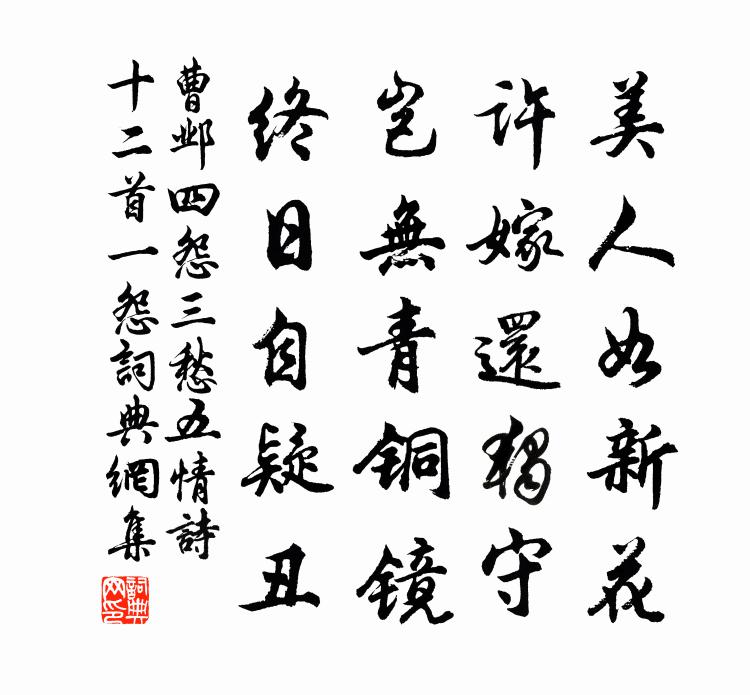 美人如新花
許嫁還獨守
豈無青铜镜
終日自疑丑
曹邺四怨三愁五情詩
十二首一怨詞典網集
詞典
网印